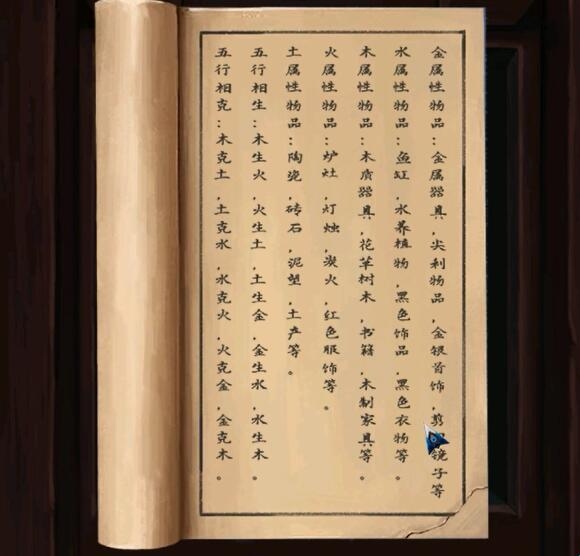 金属性物品：金属器具，尖利物品，金银首饰，剪 镜子等
水属性物品：鱼缸，水养植物，黑色饰品，黑色衣物等。
木属性物品：木质器具，花草树木，书籍，木制家具等。
火属性物品：炉灶，灯烛，炭火，红色服饰等。
土属性物品：陶瓷，砖石，泥塑，土产等。
五行相生：木生火，火生土，土生金，金生水，水生木。
五行相克：木克土，土克水，水克火，火克金，金克木。